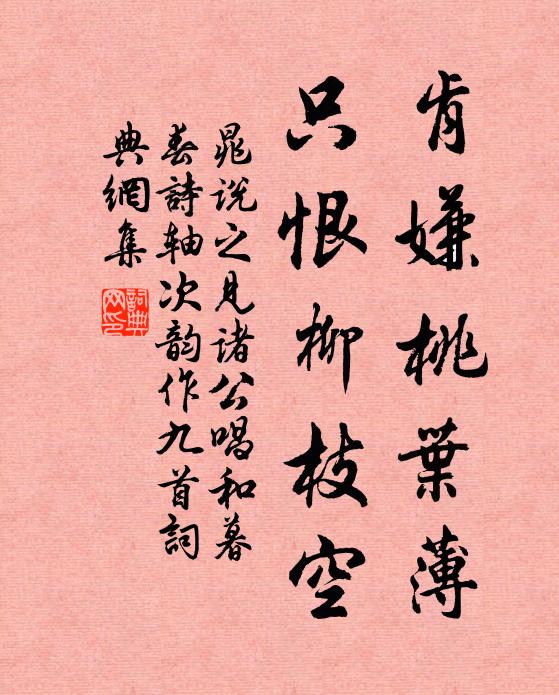 肯嫌桃葉薄
只恨柳枝空
晁说之见诸公唱和暮
春詩轴次韵作九首詞
典網集
詞典网印